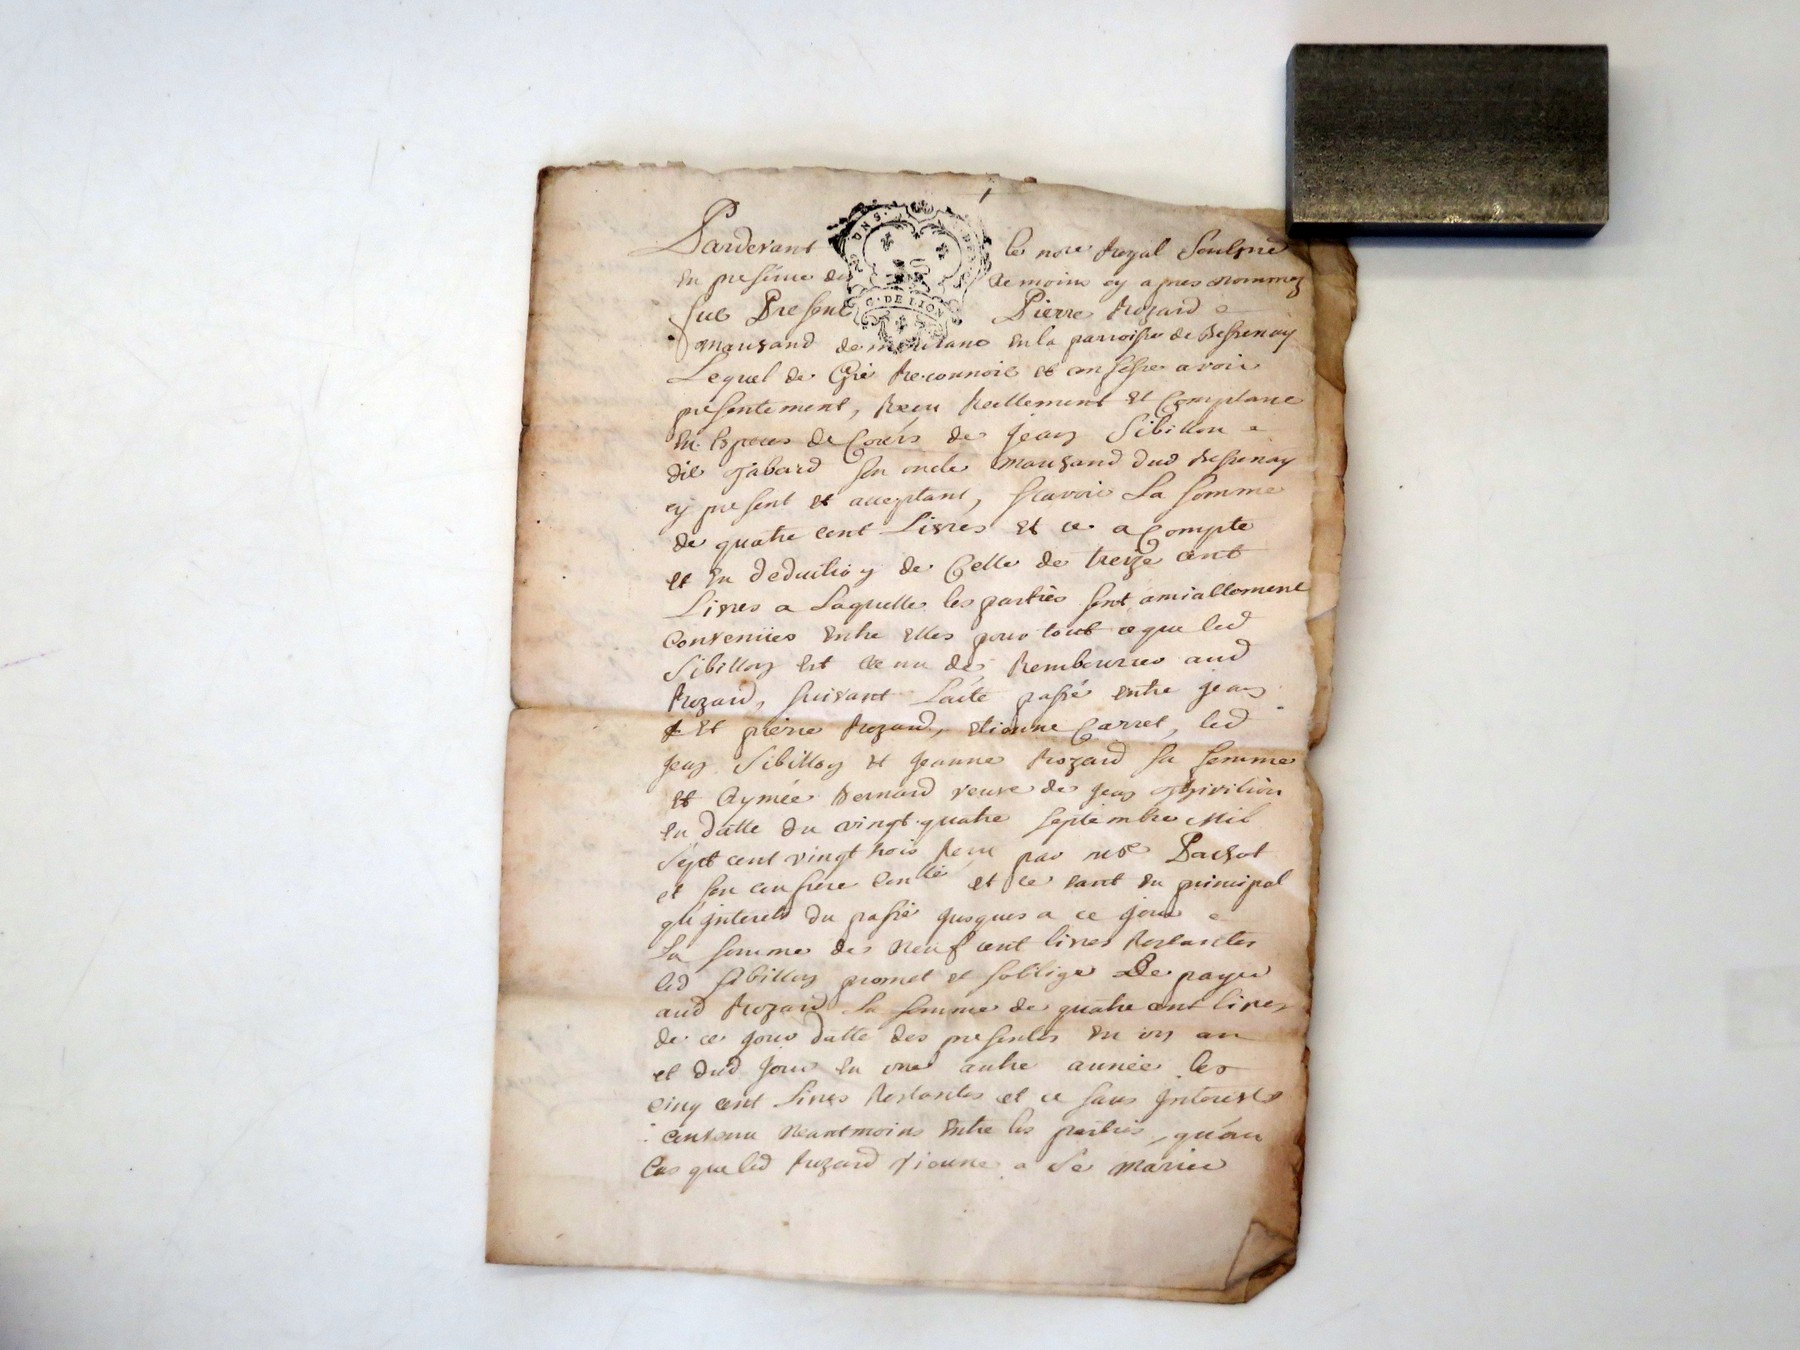 Pardevant le nore Royal Soulsné
En presence des temoins cy apres nommez
fut Present Pierre Rozard
marchand de en la parroisse de Bessenay
Lequel de Gré Reconnoit et confesse avoir
presentement, Receu Reellement et Comptant
En Especes de Cours de jean Sibillon
dit Gabard son oncle marchand dud Bessenay
cy present et acceptant, scavoir La somme
de quatre cent Livres et ce a Compte
et En deduction de Celle de treize cent
Livres a Laquelle les parties sont amiallement
Convenües Entre Elles pour tout ce que led
Sibillon Est tenu de Rembourcer aud
Rozard, suivant Lacte passé entre jean
Et pierre Rozard, Etienne Carret, led
jean Sibillon et jeanne Rozard sa femme
et Aymée Bernard veuve de jean
En datte du vingt quatre septembre Mil
Sept cent vingt trois Receu par me
et son confrere et ce tant En principal
qu'interets du passé jusques a ce jour
La somme des Neuf cent livres Restantes
led Sibillon promet et soblige De payer
aud Rozard La somme de quatre cent livres
de ce jour datte des presentes En un an
et dud jour En une autre année les
cinq cent Livres Restantes et ce sans jnterests
convenu Neantmoins Entre les parties, qu'au
Cas que led Rozard vienne a Se marier
G. DE LION